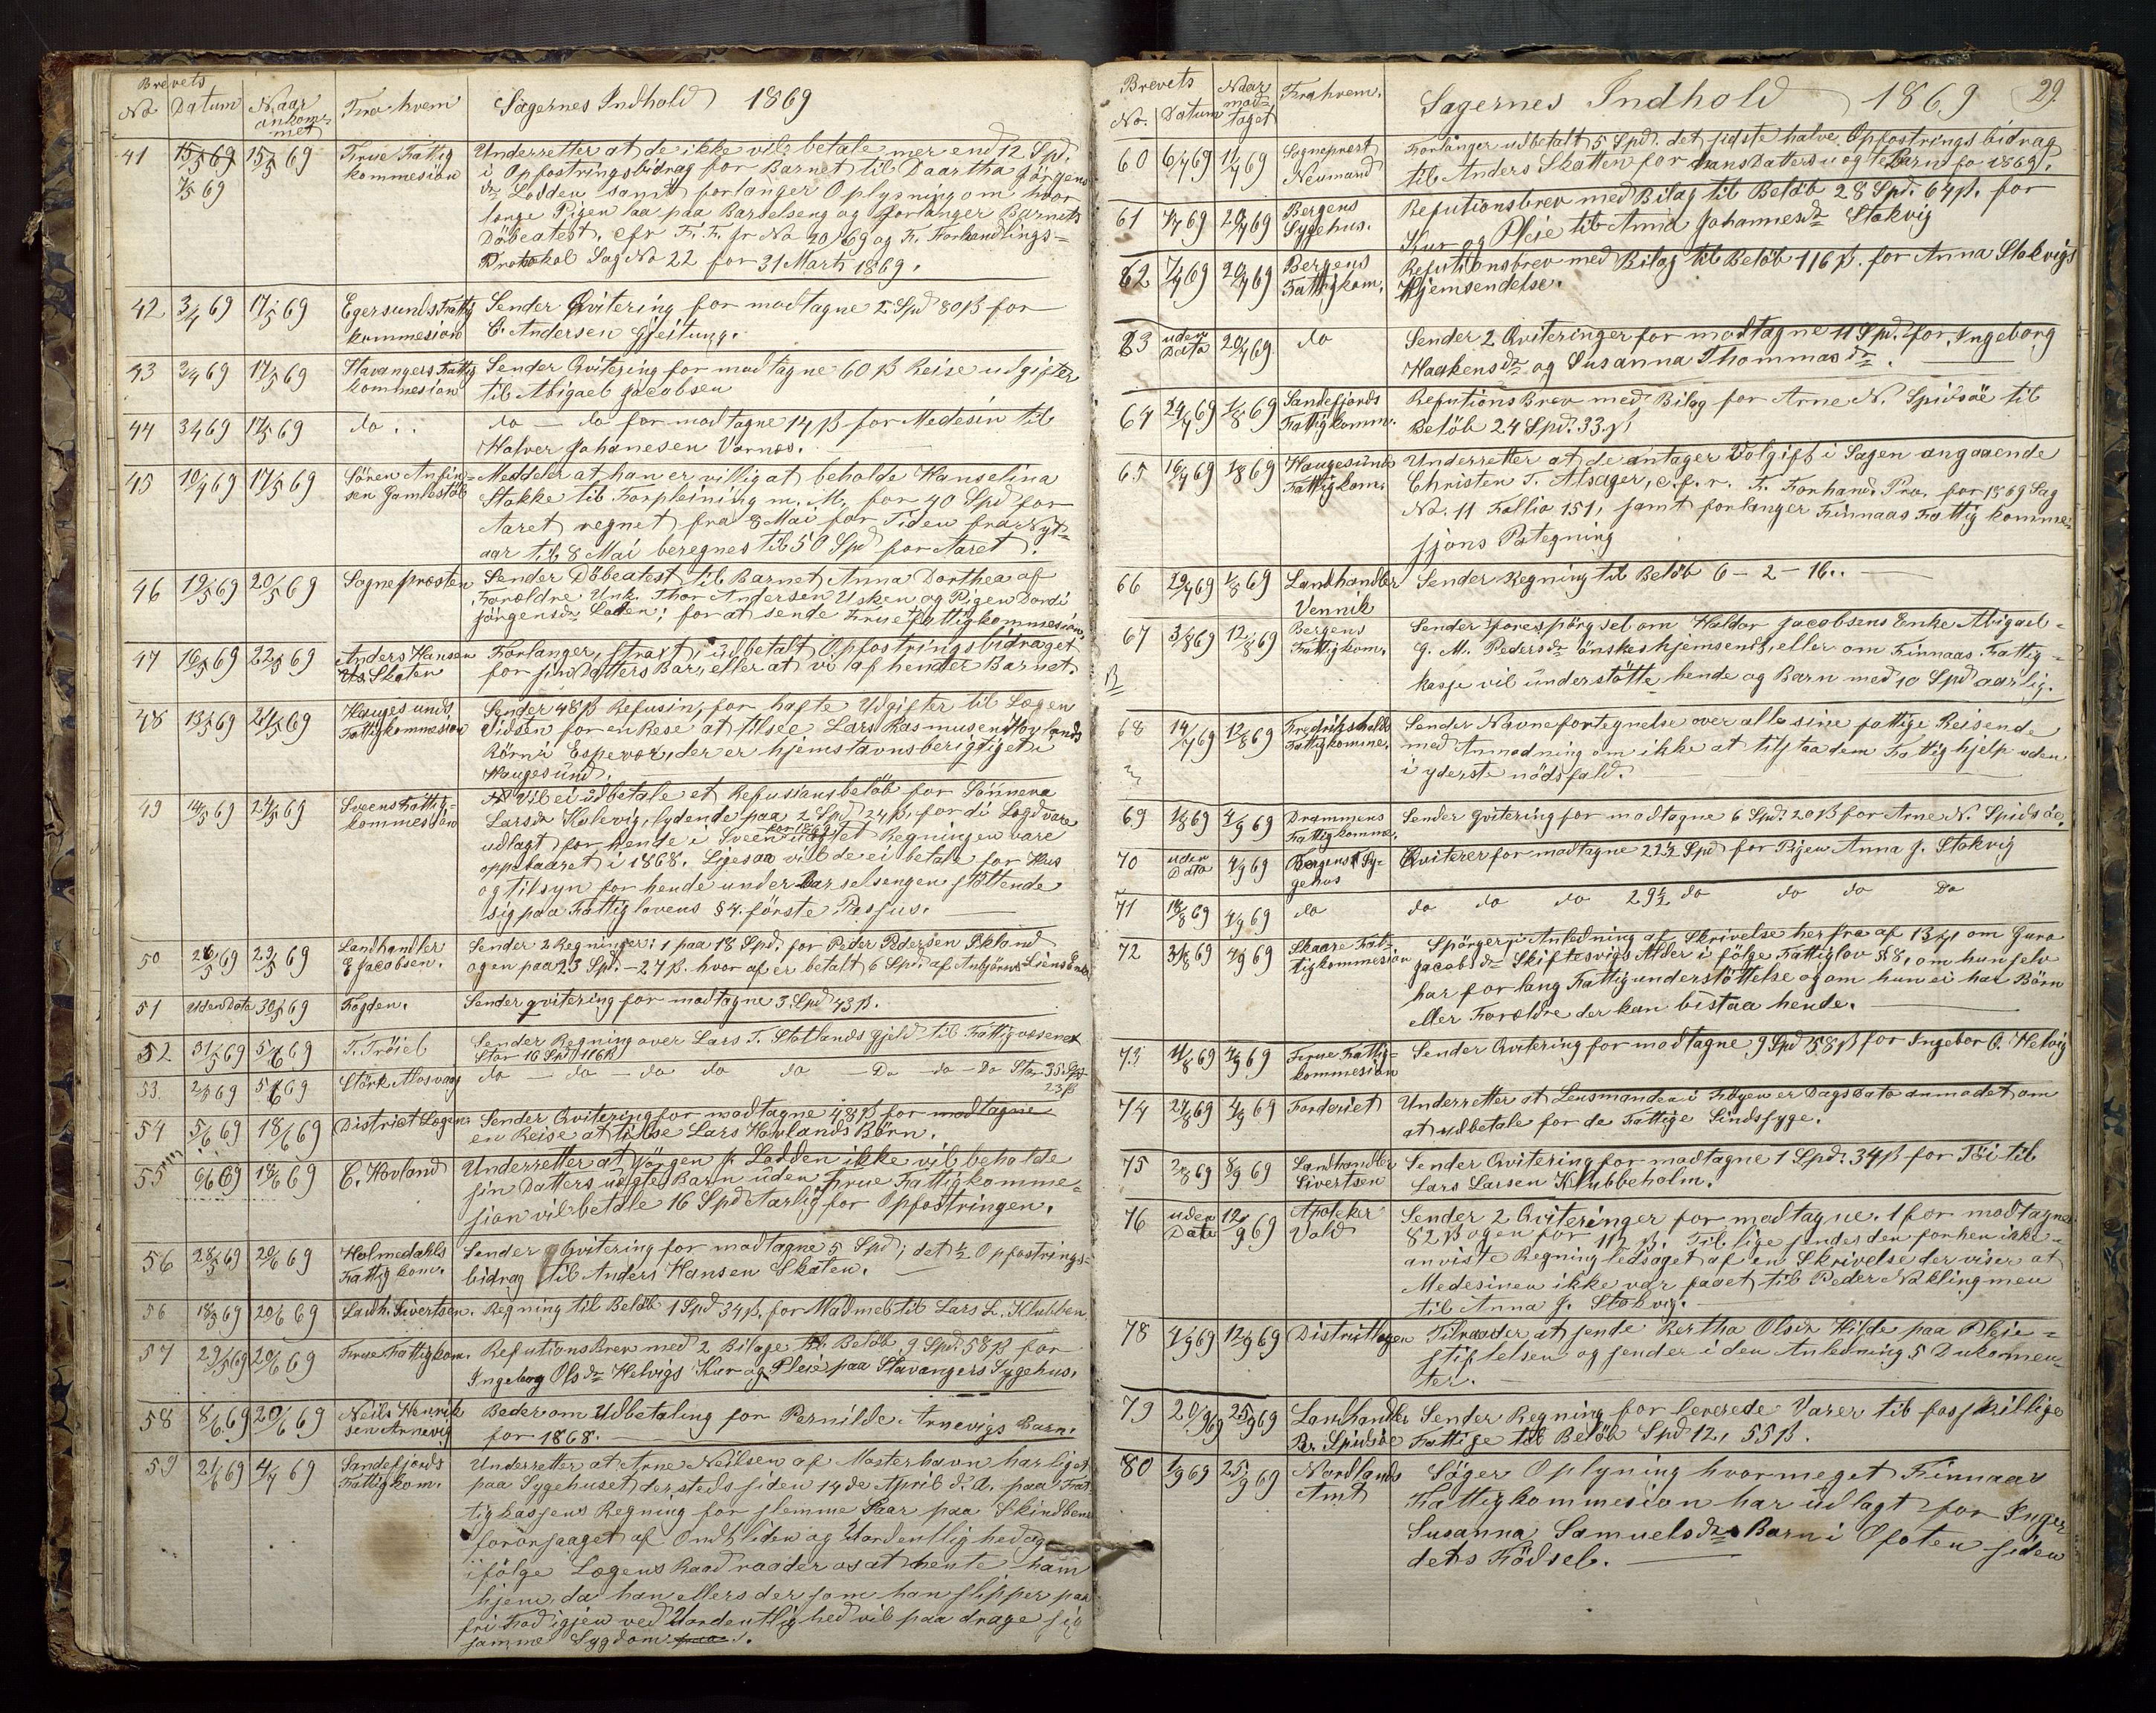 Brevets
No Datum Naar ankommet Fra hvem Sagernes Indhold 1869
41 15/5 69 15/5 69 Tirue Fattig Underretter at de ikke vil betale mer end 12 Spd.
7/5 69 kommesion i Opfostringsbidrag for Barnet til Daartha Jörgens
dr Lodden samt forlanger Oplysning om hvor
længe Pigen laa paa Barselseng og forlanger Barnets
Döbeatest. cfr F. K. fr No 20/69 og F. Forhandlings-
Protokol Sag No 22 for 31 Marts 1869.
42 3/4 69 17/5 69 Egersunds Fattig Sender Qvitering for modtagne 2 Spd 80 ß for
kommesion C. Andersen Gjeitung.
43 3/4 69 17/5 69 Stavangers Fattig Sender Qvitering for modtagne 60 ß Reiseudgifter
kommesion til Abigael Jacobsen
44 3/4 69 17/5 69 do . . do — do for modtagne 14 ß for Medesin til
Halver Johanesen Vornes.
45 10/4 69 17/5 69 Sören Ansin- Meddeler at han er villig at beholde Hanselina
sen Gamlestöl Stokke til Forpleining m. M. for 40 Spd for
Aaret regnet fra 8 Mai for Tiden fra Nyt-
aar til 8 Mai beregnes til 50 Spd for Aaret.
46 19/5 69 20/5 69 Sognepresten Sender Döbeatest til Barnet Anna Dorthea af
Foreldre Unk. Thor Andersen Vsken og Pigen Dordi
Jörgensdr Loden; for at sende Tirue Fattigkommesion.
47 16/5 69 22/5 69 Anders Hansen Forlanger, straxt, udbetalt Opfostringsbidraget
Us. Skaten for sin Datters Barn, eller at vi afhenter Barnet.
48 13/5 69 24/5 69 Hauges unds Sender 48 ß Refusin, for hafte Udgifter til Lægen
Fattigkommesion Vidsten for en Rese at tilsee Lars Rasmusen Hovlands
Börn i Espevær, der er hjemstavnsberigtiget i
Haugesund.
49 14/5 69 24/5 69 Sveens Fattig- Vil ei udbetale et Refusionsbelöb for Sönneva
kommesion Larsdr Kolevig, lydende paa 2 Spd 24 ß, fordi Logd vare
udlagt for hende i Sveen for 1869 uagtet Regningen vare
oppebaaret i 1868. Ligesaa vil de ei betale for Hus
og tilsyn for hende under Barselsengen stöttende
sig paa Fattiglovens § 4. förste Passus.
50 26/5 69 29/5 69 Landhandler Sender 2 Regninger: 1 paa 18 Spd. for Peder Pedersen Økland
E Jacobsen. og en paa 23 Spd. – 27 ß. hvor af er betalt 6 Spd. af Anbjörns Liens Enke
51 Uden Data 30/5 69 Fogden. Sender qvitering for modtagne 3 Spd 43 ß.
52 31/5 69 5/6 69 T. Tröiel Sender Regning over Lars T. Statlands Gjeld til Fattigvæsenet
Stor 16 Spd 116 ß
53. 2/6 69 5/6 69 Störk Mosvaag do — do — do do do — Do do – Do Stor 35 Spd
23 ß
54 5/6 69 18/6 69 District Lægen Sender Qvitering for modtagne 48 ß for modtagne
en Reise at tilse Lars Hovlands Börn.
55 9/6 69 18/6 69 C. Hovland Underretter at Jörgen J. Lodden ikke vil beholde
sin Datters uægte Barn uden Tirue Fattigkomme-
sion vil betale 16 Spd Aarlig for Opfostringen.
56 28/5 69 20/6 69 Holmedahls Sender Qvitering for modtagne 5 Spd; det ½ Opfostrings-
Fattigkom. bidrag til Anders Hansen Skaten.
56 18/5 69 20/6 69 Landh. Sivertsen. Regning til Belöb 1 Spd 34 ß, for Madmel til Lars L. Klubben
57 29/5 69 20/6 69 Tirue Fattigkom. Refutions Brev med 2 Bilage til Belöb 9 Spd. 58 ß for
Ingeborg Olsdr Helvigs Kur og Pleie paa Stavangers Sygehus.
58 8/6 69 20/6 69 Neils Henrik Beder om Udbetaling for Pernilde Arnevigs Barn.
sen Arnevig for 1868.
59 21/6 69 4/7 69 Sandefjords Underretter at Arne Neilsen af Mosterhavn har ligget
Fattigkom. paa Sygehuset dersteds siden 14de April d. A. paa Fat-
tigkassens Regning for slemme Saar paa Skindbene
foraarsaaget af Ondt liden og Uordentlighed og
ifölge Lægens Raad raader os at hente ham
hjem, da han ellers dersom han slipper paa
fri Fod igjen ved Uordentlighed vil paa drage sig
samme Sygdom paa.
Brevets
No. Datum Naar modtaget Fra hvem. Sagernes Indhold 1869 29.
60 6/7 69 11/7 69 Sogneprest Forlanger udbetalt 5 Spd. det sidste halve Opfostringsbidrag
Neumand til Anders Skatten for hans Datters uægte Barn for 1869.
61 7/7 69 20/7 69 Bergens Refutionsbrev med Bilag til Belöb 28 Spd. 64 ß. for
Sygehus. Kur og Pleie til Anna Johannesdr Stokvig
62 7/7 69 20/7 69 Bergens Refutionsbrev med Bilag til Belöb 116 ß. for Anna Stokvigs
Fattigkom. Hjemsendelse.
63 uden Data 20/7 69 do Sender 2 Qviteringer for modtagne 11 Spd. for Ingeborg
Haakensdr og Susanna Thommasdr.
64 24/7 69 1/8 69 Sandefjords Refutions Brev med Bilag for Arne N. Spidsöe til
Fattigkomm. Belöb 24 Spd. 33 ß
65 16/7 69 1/8 69 Haugesunds Underretter at de antager Volgift i Sagen angaaende
Fattigkom. Christen T. Alsager, c. f. r. F. Forhand. Pro. for 1869 Sag
No. 11 Follio 151, samt forlanger Finnaas Fattig komme-
sjons Pategning
66 29/7 69 1/8 69 Landhandler Sender Regning til Belöb 6 – 2 – 16..
Vennik
67 3/8 69 12/8 69 Bergens Sender forespörgsel om Haldor Jacobsens Enke Abigael
Fattigkom. G. M. Pedersdr önskes hjemsendt, eller om Finnaas Fattig-
kasse vil understötte hende og Barn med 10 Spd aarlig.
68 14/7 69 12/8 69 Fredrikshalds Sender Navnefortegnelse over alle sine fattige Reisende
Fattigkomme. med Anmodning om ikke at tilstaa dem Fattighjelp uden
i yderste nödsfald.
69 1/8 69 4/9 69 Drammens Sender qvitering for modtagne 6 Spd. 20 ß for Arne N. Spidsöe.
Fattigkomme.
70 uden Data 4/9 69 Bergens Sy- Qviterer for modtagne 22½ Spd for Pigen Anna J. Stokvig
gehus
71 18/8 69 4/9 69 do do do do 29½ do do do Do
72 31/8 69 4/9 69 Skaare Fat- Spörger i Anledning af Skrivelse herfra af 13/4 om Guro
tigkommesion Jacobsdr Skiftesvigs Alder i fölge Fattiglov § 8, om hun selv
har forlang Fattigunderstöttelse og om hun ei har Börn
eller Foreldre der kan bistaa hende.
73 4/8 69 4/9 69 Tirue Fattig- Sender Qvitering for modtagne 9 Spd 58 ß for Ingebor O. Helvig
kommesion
74 27/8 69 4/9 69 Forderiet Underretter at Lensmanden i Föyen er Dags Dato anmodet om
at udbetale for de Fattige Sindssyge.
75 2/8 69 8/9 69 Landhandler Sender Qvitering for modtagne 1 Spd. 34 ß for Töi til
Sivertsen Lars Larsen Klubbeholm.
76 uden Data 12/9 69 Apoteker Sender 2 Qviteringer for modtagne. 1 for modtagne
Vold 82 ß og en for 112 ß. Tillige sendes den forhen ikke-
anviste Regning ledsaget af en Skrivelse der viser at
Medesinen ikke var faaet til Peder Nökling men
til Anna J. Stokvig.
78 4/9 69 12/9 69 Distriktlægen Tilraader at sende Bertha Olsdr Hilde paa Pleie-
stiftelsen og sender i den Anledning 5 Dukomen-
ter.
79 20/9 69 25/9 69 Landhandler Sender Regning for leverede Varer til forskillige
Pr. Spidsöe Fattige til Belöb Spd 12, 55 ß.
80 1/9 69 25/9 69 Nordlands Söger Oplyning hvormeget Finnaas
Amt Fattigkommesion har udlagt for Inger
Susanna Samuelsdrs Barn i Ofoten siden
dets Födsel.